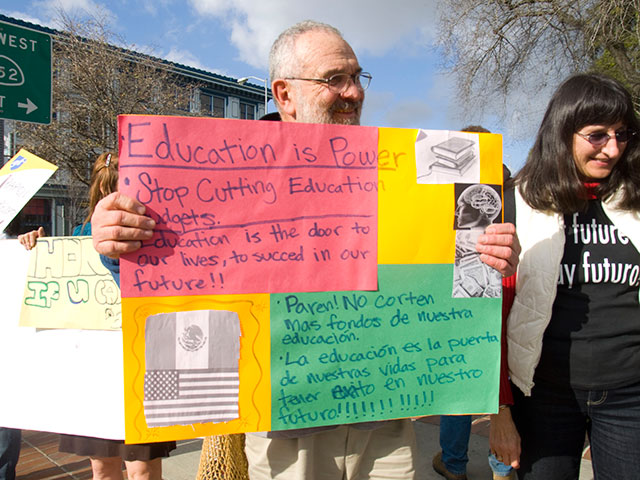 WEST
52
Education is Power
• Stop Cutting Education
Budgets.
Education is the door to
our lives, to succed in our
future!!
• Paren! No corten
mas fondos de nuestra
educación.
• La educación es la puerta
de nuestras vidas para
tener exito en nuestro
futuro!!!!!!!!!!!!
If U
future
futuro